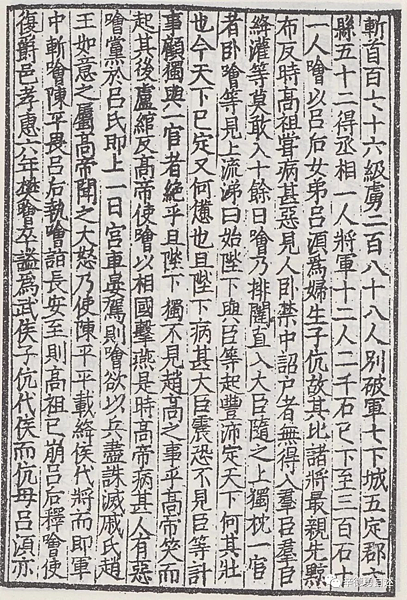 斬首百七十六級虜二百八十八人別破軍七下城五定郡六
縣五十二得丞相一人將軍十二人二千石已下至三百石十
一人噲以呂后女弟呂須爲婦生子伉故其比諸將最親先黥
布反時高祖甞病甚惡見人卧禁中詔戶者無得入羣臣羣臣
絳灌等莫敢入十餘日噲乃排闥直入大臣隨之上獨枕一宦
者卧噲等見上流涕曰始陛下與臣等起豐沛定天下何其壯
也今天下已定又何憊也且陛下病甚大臣震恐不見臣等計
事顧獨與一宦者絶乎且陛下獨不見趙高之事乎高帝笑而
起其後盧綰反高帝使噲以相國擊燕是時高帝病甚人有惡
噲黨於呂氏即上一日宮車晏駕則噲欲以兵盡誅滅戚氏趙
王如意之屬高帝聞之大怒乃使陳平平載絳侯代將而即軍
中斬噲陳平畏呂后執噲詣長安至則高祖已崩呂后釋噲使
復爵邑孝惠六年樊噲卒謚爲武侯子伉代侯而伉母呂須亦